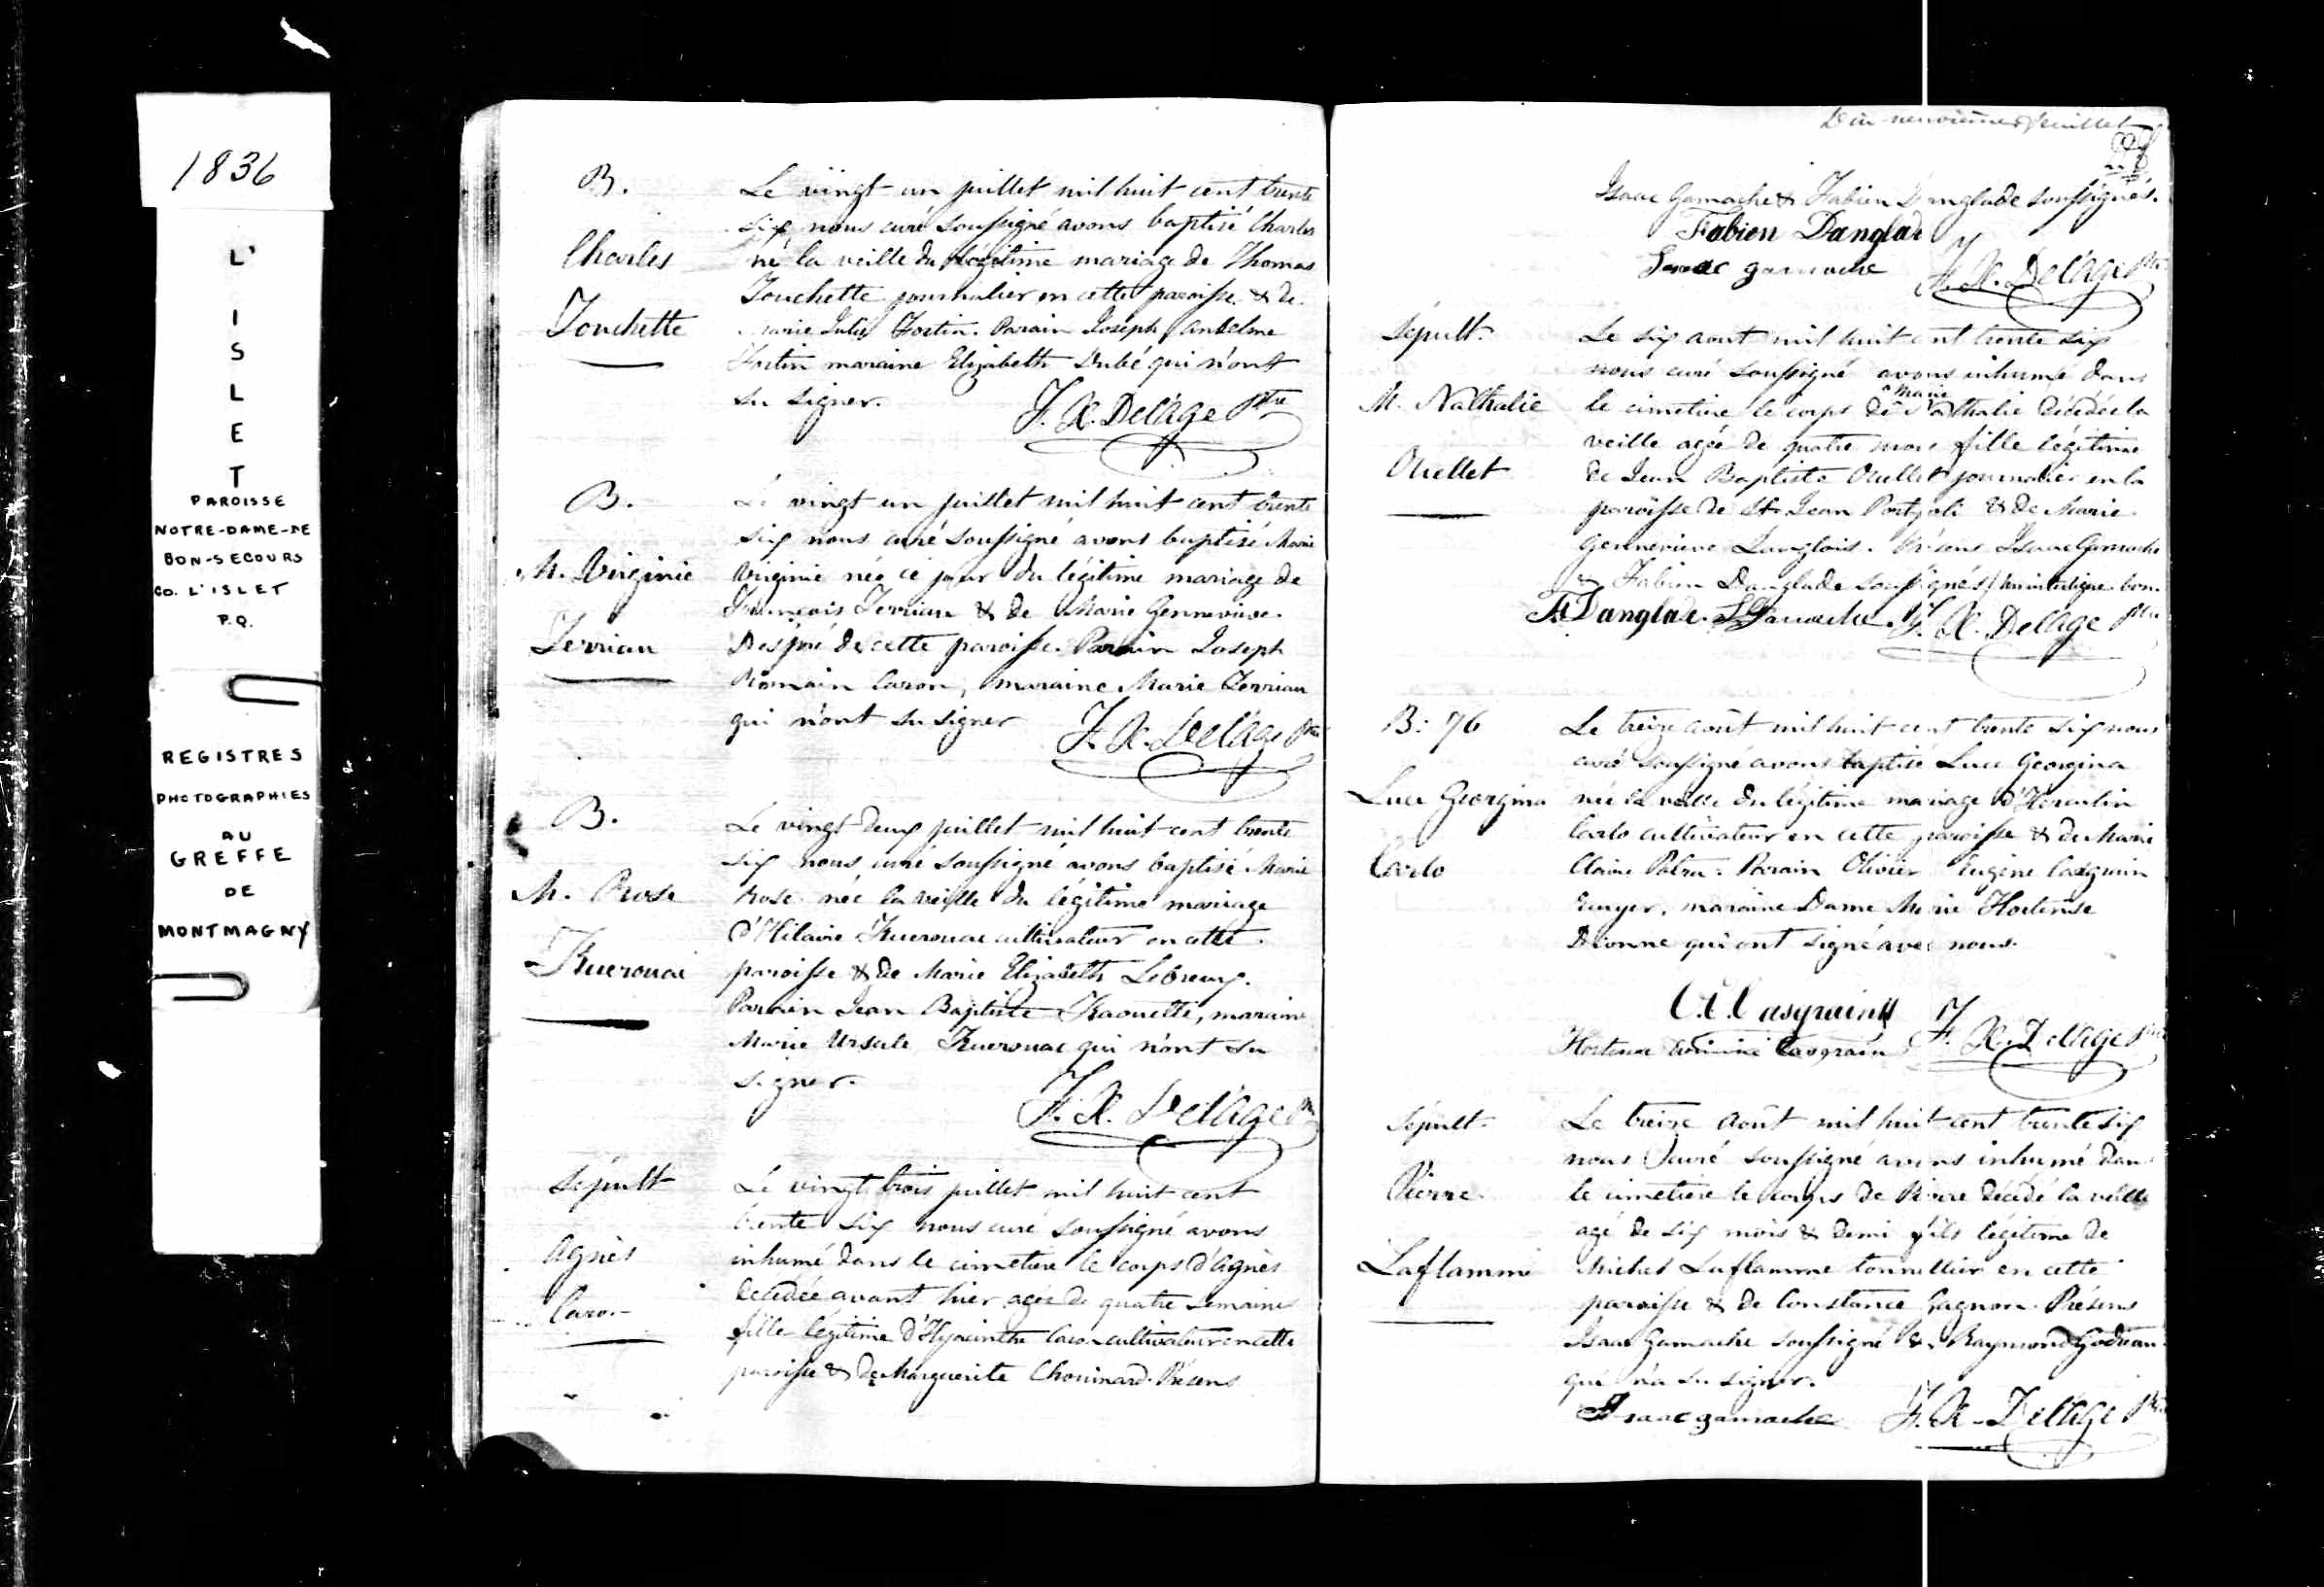 1836
L'
I
S
L
E
T
PAROISSE
NOTRE-DAME-DE
BON-SECOURS
CO. L'ISLET
P.Q.
REGISTRES
PHOTOGRAPHIES
AU
GREFFE
DE
MONTMAGNY
B.
Charles
Touchette
Le vingt un juillet mil huit cent trente
six, nous curé soussigné avons baptisé Charles
né la veille du légitime mariage de Thomas
Touchette journalier en cette paroisse & de
Marie Julie Fortin. Parain Joseph Anselme
Fortin maraine Elizabeth Dubé qui n'ont
su signer.
F. X. Delâge Ptre
B.
M. Virginie
Terriau
Le vingt un juillet mil huit cent trente
six nous curé soussigné avons baptisé Marie
Virginie née ce jour du légitime mariage de
François Terriau & de Marie Gennevieve
Després de cette paroisse. Parain Joseph
Romain Caron, maraine Marie Terriau
qui n'ont su signer
F. X. Delâge Ptre
B.
M. Rose
Kuerouac
Le vingt deux juillet mil huit cent trente
six nous curé soussigné avons baptisé Marie
Rose née la veille du légitime mariage
d'Hilaire Kuerouac cultivateur en cette
paroisse & de Marie Elizabeth Lebreux.
Parain Jean Baptiste Kaouette, maraine
Marie Ursule Kuerouac qui n'ont su
signer.
F. X. Delâge Ptre
Sépult
Agnès
Caron
Le vingt trois juillet mil huit cent
trente six nous curé soussigné avons
inhumé dans le cimetiere le corps d'Agnès
décédée avant hier agée de quatre semaines
fille légitime d'Hyacinthe Caron cultivateur en cette
paroisse & de Marguerite Chouinard. Présens
Dix-neuvième feuillet
Isaac Gamache & Fabien Danglade soussignés.
Fabien Danglad
Isaac gamache
F. X. Delâge Ptre
Sépult.
M. Nathalie
Ouellet
Le six aout mil huit cent trente six
nous curé soussigné avons inhumé dans
Marie
le cimetiere le corps de Nathalie décédée la
veille agée de quatre mois fille légitime
de Jean Baptiste Ouellet journalier en la
paroisse de St Jean Portjoli & de Marie
Gennevieve Langlois. Présens Isaac Gamache
& Fabien Danglade soussignés bon.
F. Danglade I Gamache F. X. Delâge Ptre
B: 76
Luce Georgina
Carlo
Le treize août mil huit cent trente six nous
curé soussigné avons baptisé Luce Georgina
née la veille du légitime mariage
Carlo cultivateur en cette paroisse & de Marie
Claire Patru. Parain Olivier Eugène Casgrain
Ecuyer, maraine Dame Marie Hortense
Dionne qui ont signé avec nous.
Casgrain
Hortense Casgrain
F. X. Delâge Ptre
Sépult.
Pierre
Laflamme
Le treize Août mil huit cent trente six
nous curé soussigné avons inhumé dans
le cimetiere le corps de Pierre décédé la veille
agé de six mois & demi fils légitime de
Michel Laflamme tonnellier en cette
paroisse & de Constance Gagnon. Présens
Isaac Gamache soussigné & Raymond Godreau
qui n'a su signer.
Isaac gamache
F. X. Delâge Ptre